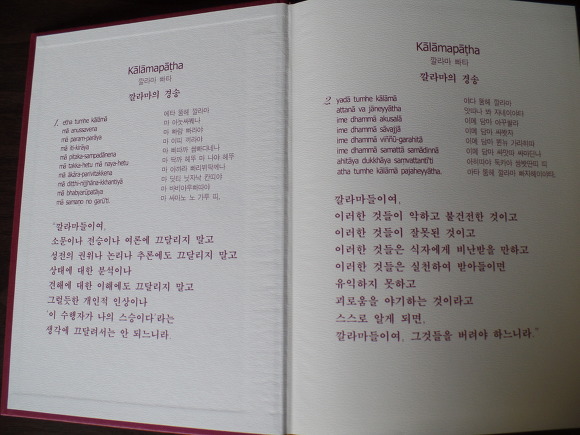 Kālāmapāṭha
깔라마 빠타
깔라마의 경송
1. etha tumhe kālāmā
mā anussavena
mā param-parāya
mā iti-kirāya
mā piṭaka-sampadānena
mā takka-hetu mā naya-hetu
mā ākāra-parivitakkena
mā diṭṭhi-nijjhāna-kkhantiyā
mā bhabyarūpatāya
mā samaṇo no garūti.
에타 뚬헤 깔라마
마 아눗싸웨나
마 빠람 빠라야
마 이띠 끼라야
마 삐따까 쌈빠다네나
마 딱까 헤뚜 마 나야 헤뚜
마 아까라 빠리위딱께나
마 딧티 닛자낙 칸띠야
마 싸마노 노 가루 띠.
"깔라마들이여,
소문이나 전승이나 여론에 끄달리지 말고
성전의 권위나 논리나 추론에도 끄달리지 말고
상태에 대한 분석이나
견해에 대한 이해에도 끄달리지 말고
그럴듯한 개인적 인상이나
'이 수행자가 나의 스승이다'라는
생각에 끄달려서는 안 되느니라.
Kālāmapāṭha
깔라마 빠타
깔라마의 경송
2. yadā tumhe kālāmā
attanā va jāneyyātha
ime dhammā akusalā
ime dhammā sāvajjā
ime dhammā viññū-garahitā
ime dhammā samattā samādinnā
ahitāya dukkhāya saṃvattantī'ti
atha tumhe kālāmā pajaheyyātha.
야다 뚬헤 깔라마
앗따나 와 자네이야타
이메 담마 아꾸쌀라
이메 담마 싸왓자
이메 담마 윈뉴 가라히따
이메 담마 싸맛따 싸마딘나
아타 뚬헤 깔라마 빠자헤이야타.
깔라마들이여,
이러한 것들이 악하고 불건전한 것이고
이러한 것들이 잘못된 것이고
이러한 것들은 식자에게 비난받을 만하고
이러한 것들은 실천하여 받아들이면
유익하지 못하고
괴로움을 야기하는 것이라고
스스로 알게 되면,
깔라마들이여, 그것들을 버려야 하느니라."